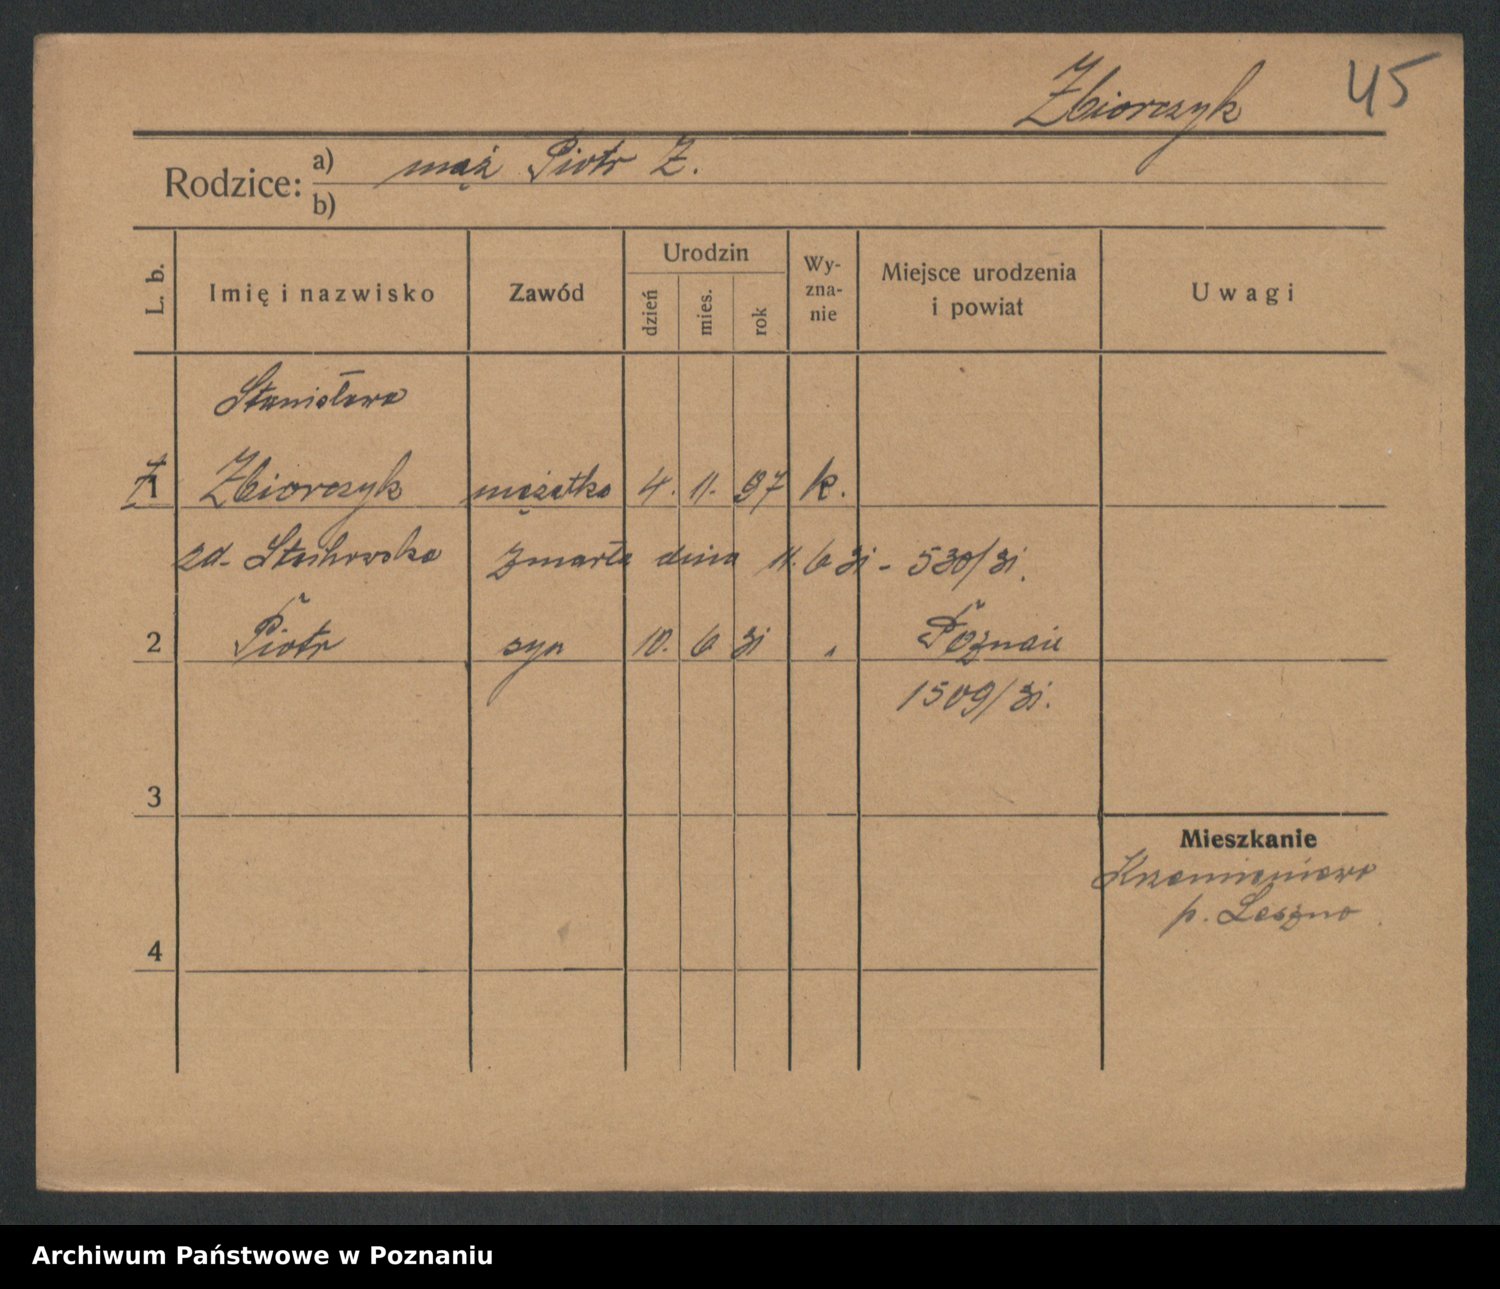 Zbiorczyk 45
Rodzice: a) mąż Piotr Z.
b)
L. b. Imię i nazwisko Zawód Urodzin dzień mies. rok Wyznanie Miejsce urodzenia i powiat Uwagi
Stanisława
1 Zbiorczyk mężatka 4. 11. 97 k.
zd. zmarła dnia 11. 6 31 - 530/31.
2 Piotr syn 10. 6 31 " Poznań
1509/31.
3
Mieszkanie
Krzemieniewo
p. Leszno
4
Archiwum Państwowe w Poznaniu